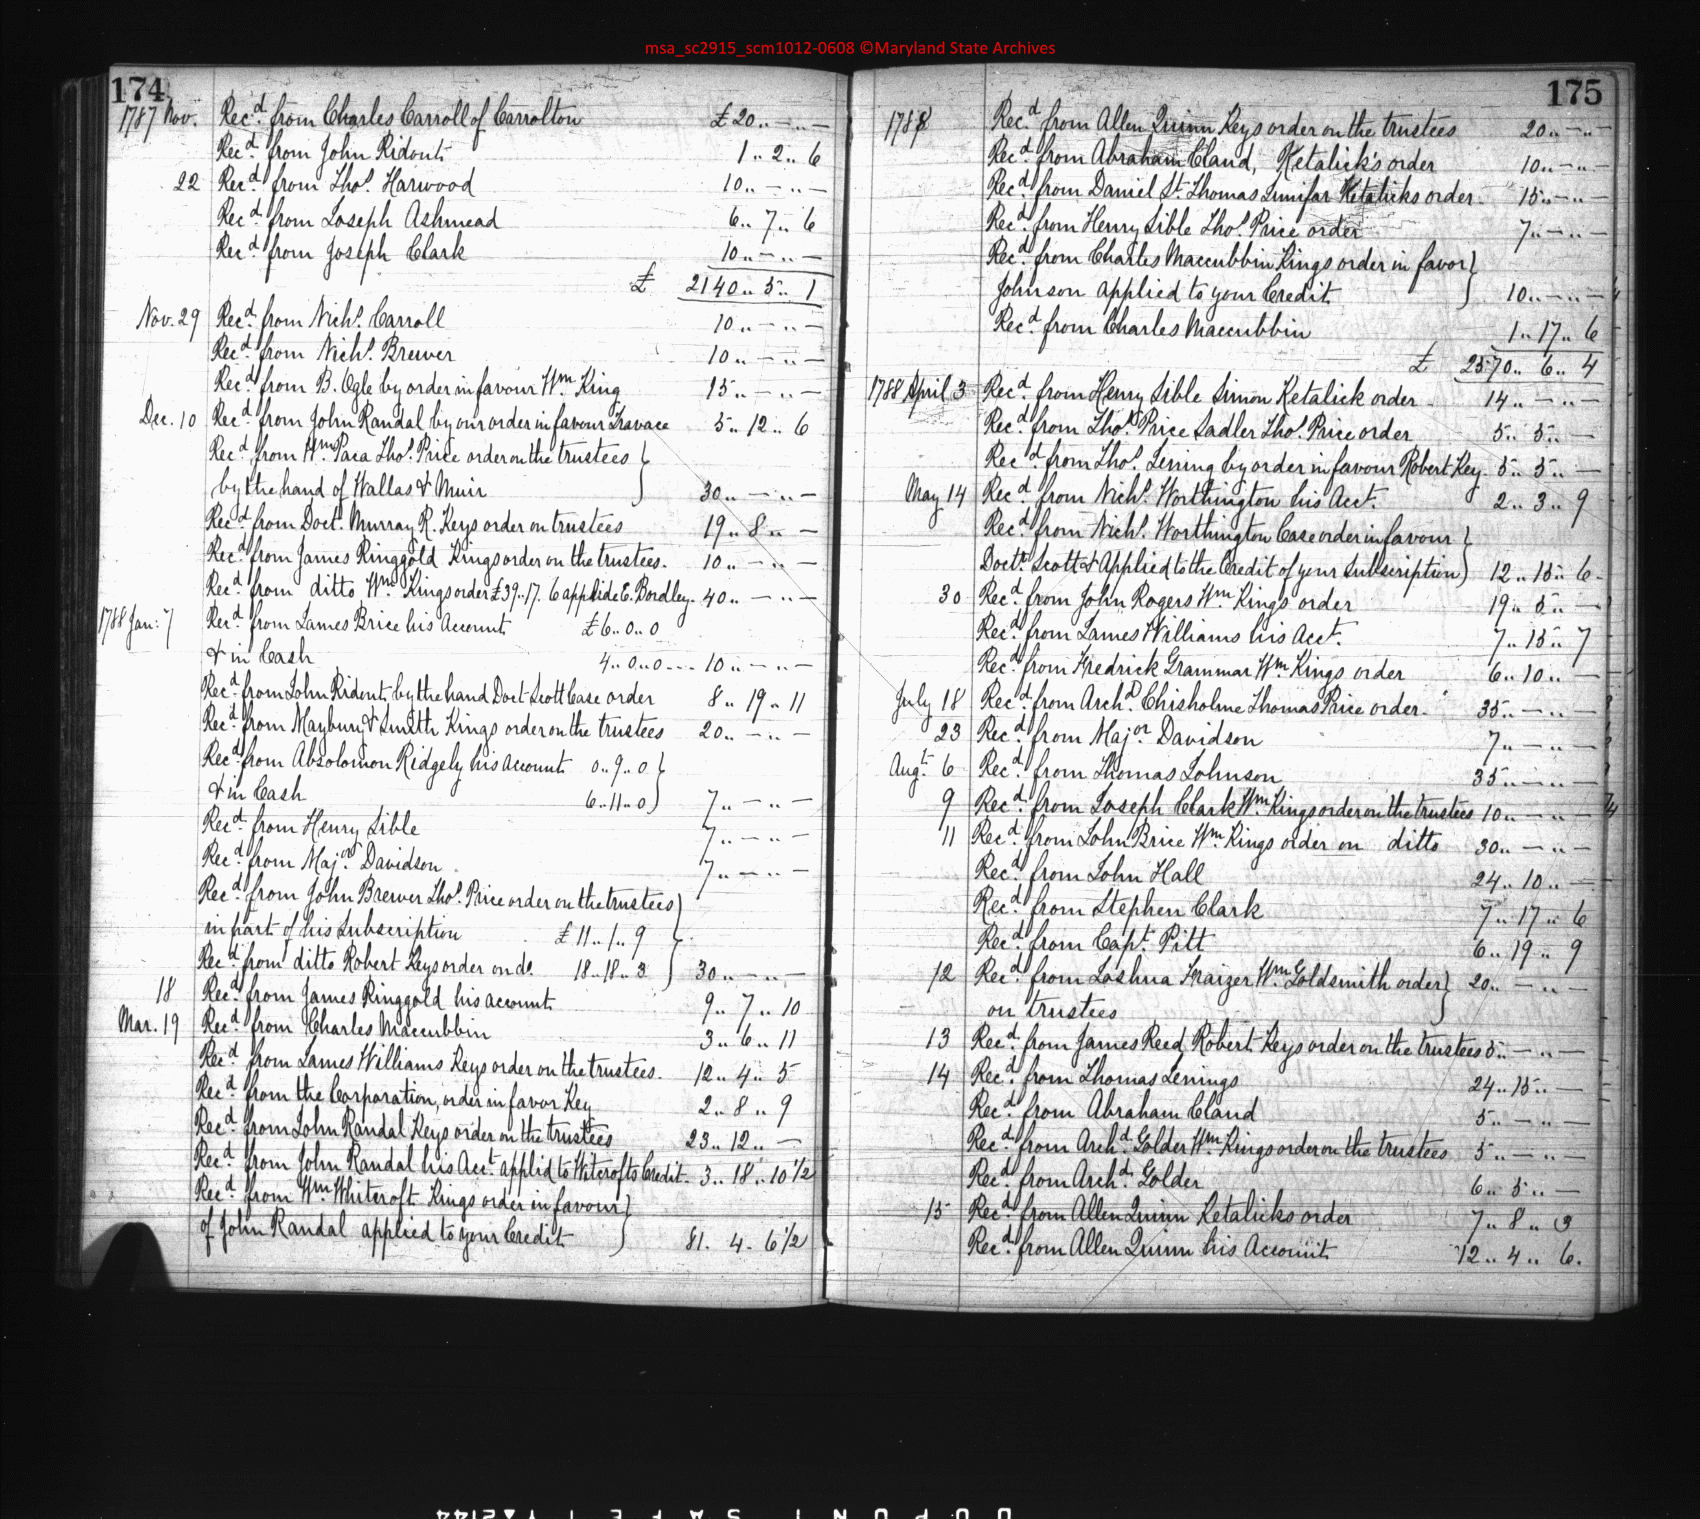 msa_sc2915_scm1012-0608 ©Maryland State Archives
174
1787 Nov. Rec.d from Charles Carroll of Carrolton £20.. — .. —
Rec.d from John Ridout 1.. 2.. 6
22 Rec.d from Tho.s Harwood 10.. — .. —
Rec.d from Joseph Ashmead 6.. 7.. 6
Rec.d from Joseph Clark 10.. — .. —
£ 2140.. 5.. 1
Nov. 29 Rec.d from Nich.s Carroll 10.. — .. —
Rec.d from Nich.s Brewer 10.. — .. —
Rec.d from B. Ogle by order in favour Wm. King 15.. — .. —
Dec. 10 Rec.d from John Randal by our order in favour Travace 5.. 12.. 6
Rec.d from Wm. Paca Tho.s Price order on the trustees
by the hand of Wallas & Muir 30.. — .. —
Rec.d from Doct. Murray R. Keys order on trustees 19.. 8.. —
Rec.d from James Ringgold Kings order on the trustees. 10.. — .. —
Rec.d from ditto Wm. Kings order £39..17.. 6 applide E. Bordley. 40.. — .. —
1788 Jan: 7 Rec.d from James Brice his Account £6..0..0
& in Cash 4..0..0.... 10.. — .. —
Rec.d from John Ridout, by the hand Doct Scott Case order 8.. 19.. 11
Rec.d from Maybury & Smith Kings order on the trustees 20.. — .. —
Rec.d from Absolomon Ridgely his account 0..9..0
& in Cash 6..11..0 7.. — .. —
Rec.d from Henry Sible 7.. — .. —
Rec.d from Maj.or Davidson 7.. — .. —
Rec.d from John Brewer Tho.s Price order on the trustees
in part of his Subscription £11..1..9
Rec.d from ditto Robert Keys order on do. 18..18..3 30.. — .. —
18 Rec.d from James Ringgold his account 9.. 7.. 10
Mar. 19 Rec.d from Charles Maccubbin 3.. 6.. 11
Rec.d from James Williams Keys order on the trustees. 12.. 4.. 5
Rec.d from the Corporation, order in favor Key 2.. 8.. 9
Rec.d from John Randal Keys order on the trustees 23.. 12.. —
Rec.d from John Randal his Acct. applid to Witcrofts Credit. 3.. 18.. 10 1/2
Rec.d from Wm. Whitcroft Kings order in favour
of John Randal applied to your Credit 81. 4. 6 1/2
175
1788 Rec.d from Allen Quinn Keys order on the trustees 20.. — .. —
Rec.d from Abraham Claud, Ketalick's order 10.. — .. —
Rec.d from Daniel St. Thomas Jenifar Ketalicks order. 15.. — .. —
Rec.d from Henry Sible Tho.s Price order 7.. — .. —
Rec.d from Charles Maccubbin Kings order in favor
Johnson applied to your Credit. 10.. — .. —
Rec.d from Charles Maccubbin 1.. 17.. 6
£ 2570.. 6.. 4
1788 April 3 Rec.d from Henry Sible Simon Ketalick order 14.. — .. —
Rec.d from Tho.s Price Sadler Tho.s Price order 5.. 5.. —
Rec.d from Tho.s Jening by order in favour Robert Key. 5.. 5.. —
May 14 Rec.d from Nich.s Worthington his Acct. 2.. 3.. 9
Rec.d from Nich.s Worthington Case order in favour
Doct. Scott & Applied to the Credit of your Subscription 12.. 15.. 6.
30 Rec.d from John Rogers Wm. Kings order 19.. 5.. —
Rec.d from James Williams his Acct. 7.. 15.. 7
Rec.d from Fredrick Grammar Wm. Kings order 6.. 10.. —
July 18 Rec.d from Arch.d Chisholme Thomas Price order. 35.. — .. —
23 Rec.d from Maj.or Davidson 7.. — .. —
Augt. 6 Rec.d from Thomas Johnson 35.. — .. —
9 Rec.d from Joseph Clark Wm. Kings order on the trustees 10.. — .. —
11 Rec.d from John Brice Wm. Kings order on ditto 30.. — .. —
Rec.d from John Hall 24.. 10.. —
Rec.d from Stephen Clark 7.. 17.. 6
Rec.d from Capt. Pitt 6.. 19.. 9
12 Rec.d from Joshua Fraizer Wm. Goldsmith order 20.. — .. —
on trustees
13 Rec.d from James Reed Robert Keys order on the trustees 5.. — .. —
14 Rec.d from Thomas Jenings 24.. 15.. —
Rec.d from Abraham Claud 5.. — .. —
Rec.d from Arch.d Golder Wm. Kings order on the trustees 5.. — .. —
Rec.d from Arch.d Golder 6.. 5.. —
15 Rec.d from Allen Quinn Ketalicks order 7.. 8.. 3
Rec.d from Allen Quinn his Account 12.. 4.. 6.